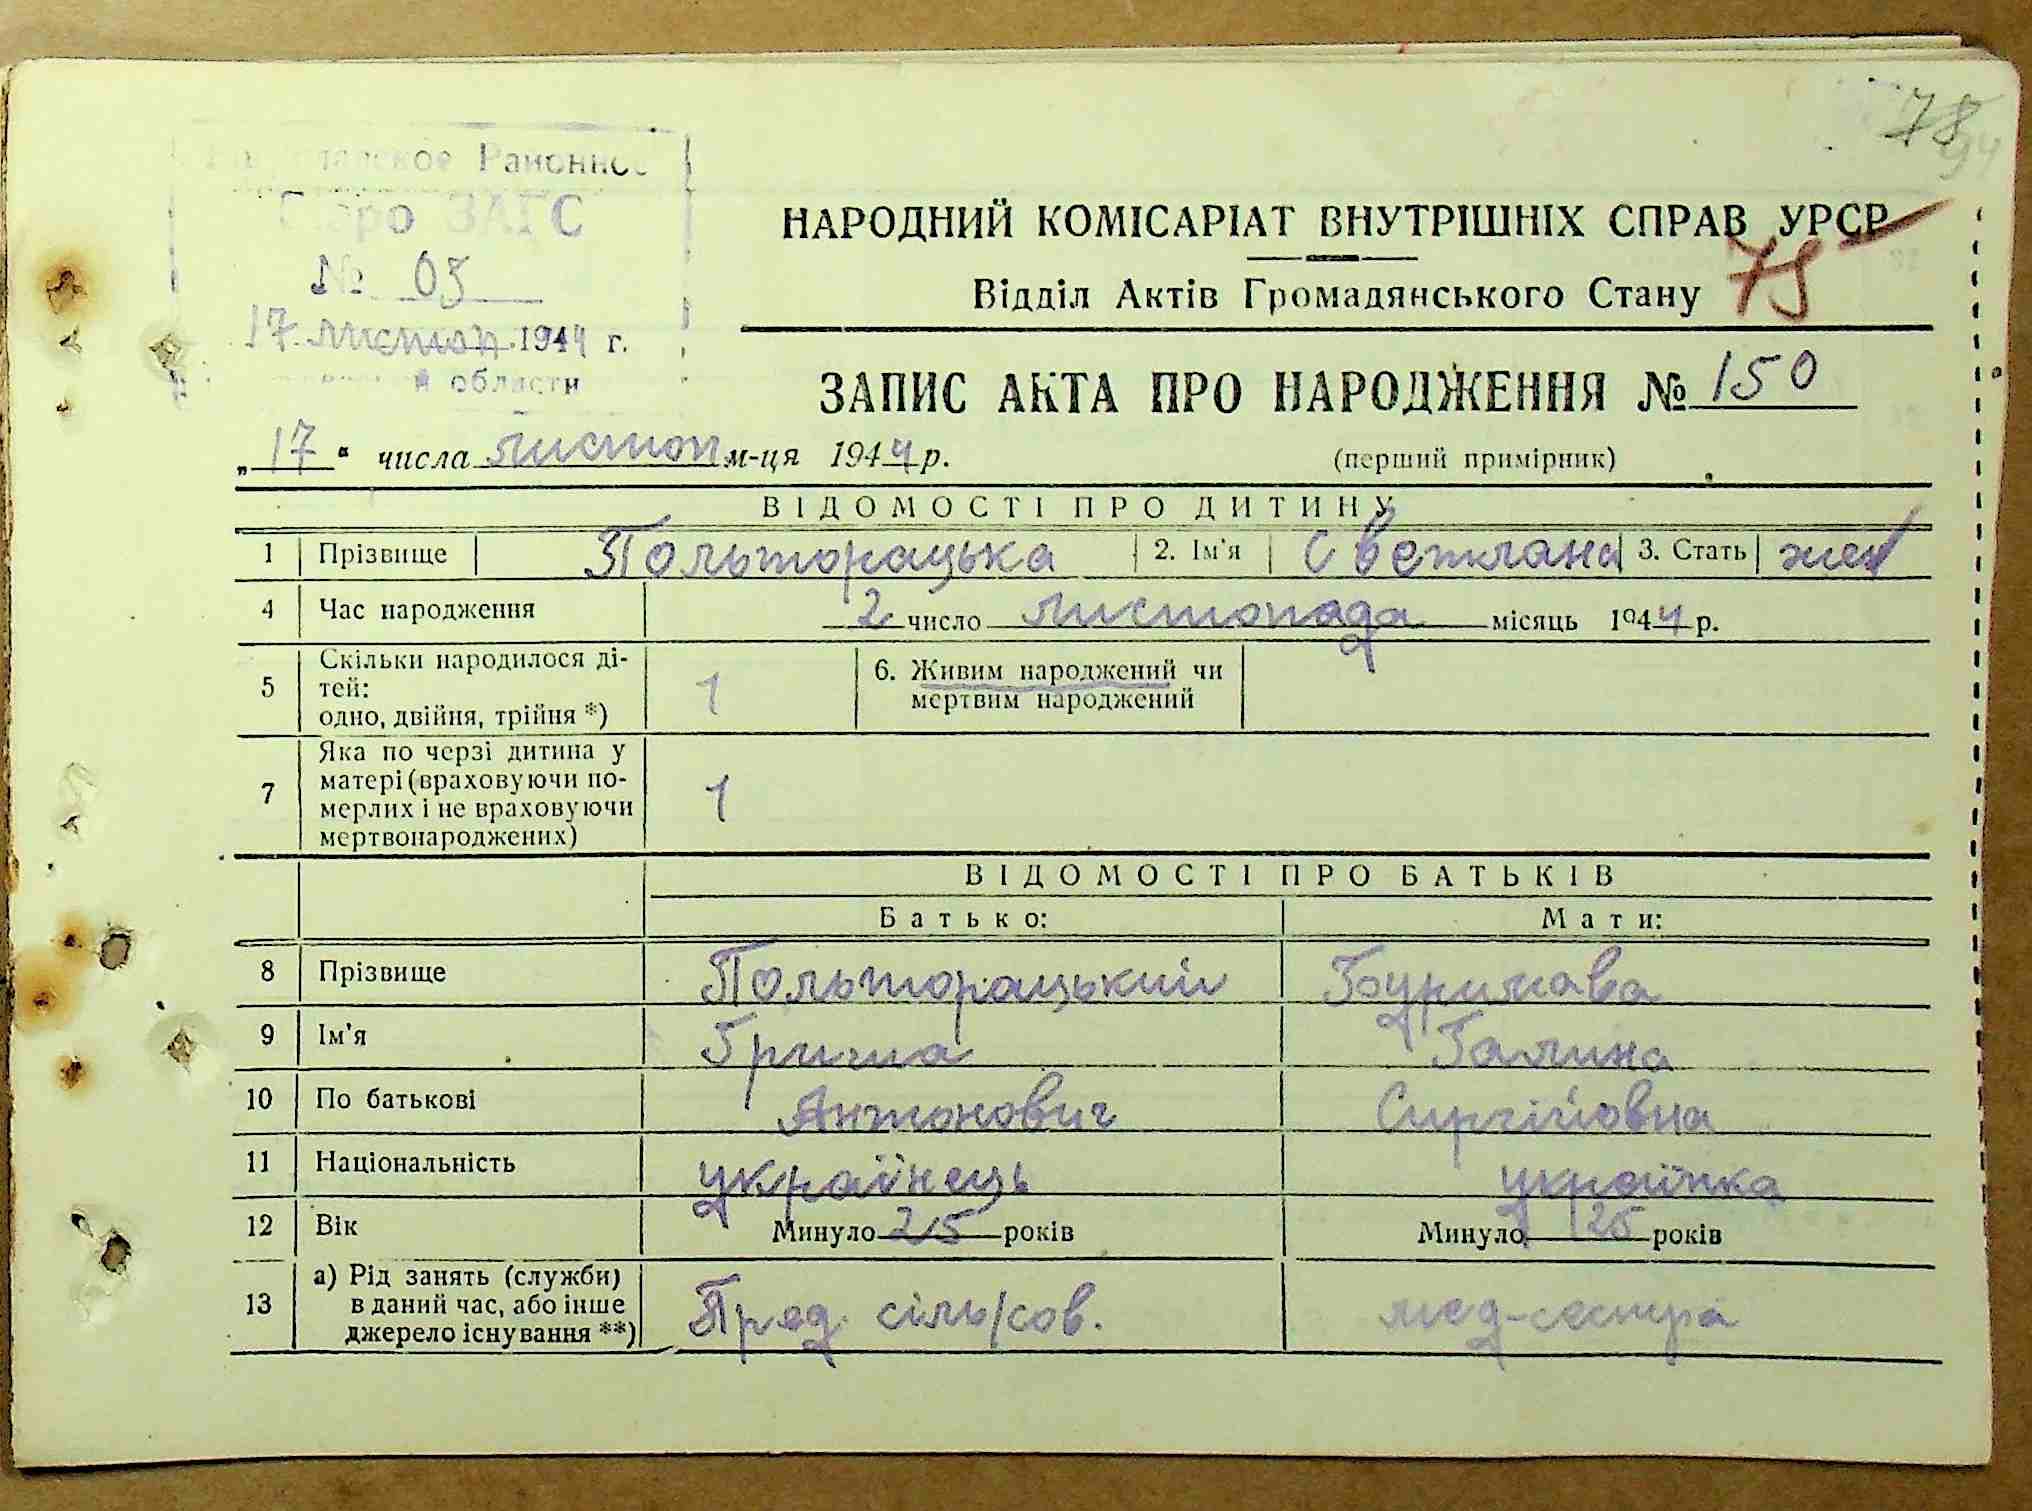 78
94
Районное
Бюро ЗАГС
№ 05
17 листоп 1944 г.
области
НАРОДНИЙ КОМІСАРІАТ ВНУТРІШНІХ СПРАВ УРСР
Відділ Актів Громадянського Стану 75
ЗАПИС АКТА ПРО НАРОДЖЕННЯ № 150
„17“ числа листоп м-ця 1944 р. (перший примірник)
ВІДОМОСТІ ПРО ДИТИНУ
1 Прізвище Польторацька 2. Ім'я Светлана 3. Стать жен
4 Час народження 2 число листопада місяць 1944 р.
5 Скільки народилося ді-
тей:
одно, двійня, трійня *) 1 6. Живим народжений чи
мертвим народжений
7 Яка по черзі дитина у
матері (враховуючи по-
мерлих і не враховуючи
мертвонароджених) 1
ВІДОМОСТІ ПРО БАТЬКІВ
Батько: Мати:
8 Прізвище Польторацький
9 Ім'я Гриша Галина
10 По батькові Антонович Сиргіїовна
11 Національність українець українка
12 Вік Минуло 25 років Минуло 25 років
13 а) Рід занять (служби)
в даний час, або інше
джерело існування **) Пред. сіль/сов. мед-сестра